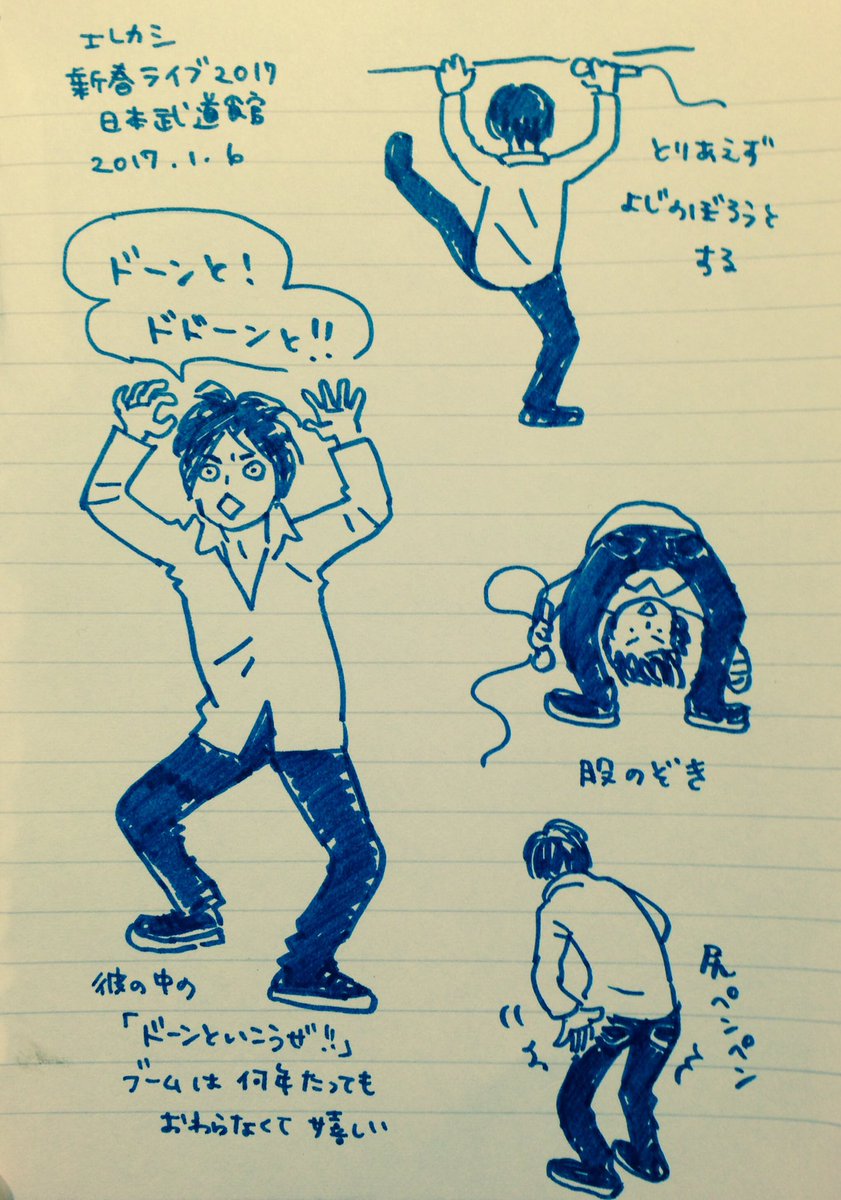 エレカシ
新春ライブ2017
日本武道館
2017.1.6
とりあえず
よじのぼろうと
する
ドーンと!
ドドーンと!!
股のぞき
尻ペンペン
彼の中の
「ドーンといこうぜ!!」
ブームは何年たっても
おわらなくて嬉しい